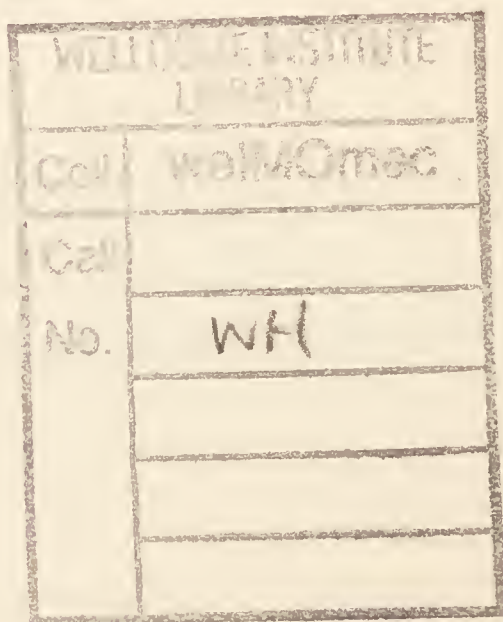 WELLCOME INSTITUTE
LIBRARY
Coll. welMOmec
Call
No. WH